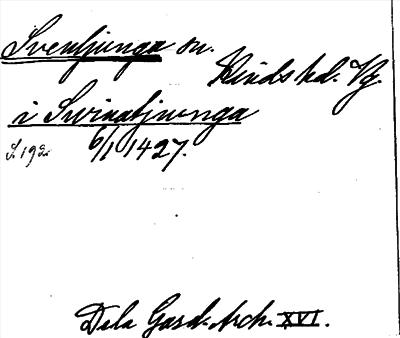 Svenljunga sn.
Kinds hd. Vg.
i Swinaljunga
S. 192. 6/1 1427.
Dela Gard. Arch. XVI.